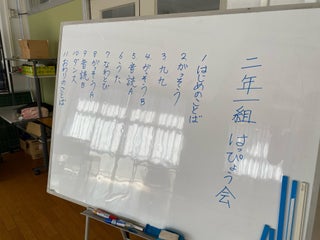 二年一組 はっぴょう会
1 はじめのことば
2 がっそう
3 九九
4 がっそう B
5 音読 A
6 うた
7 なわとび
8 がっそう A
9 音読 B
10 ダンス
11 おわりのことば